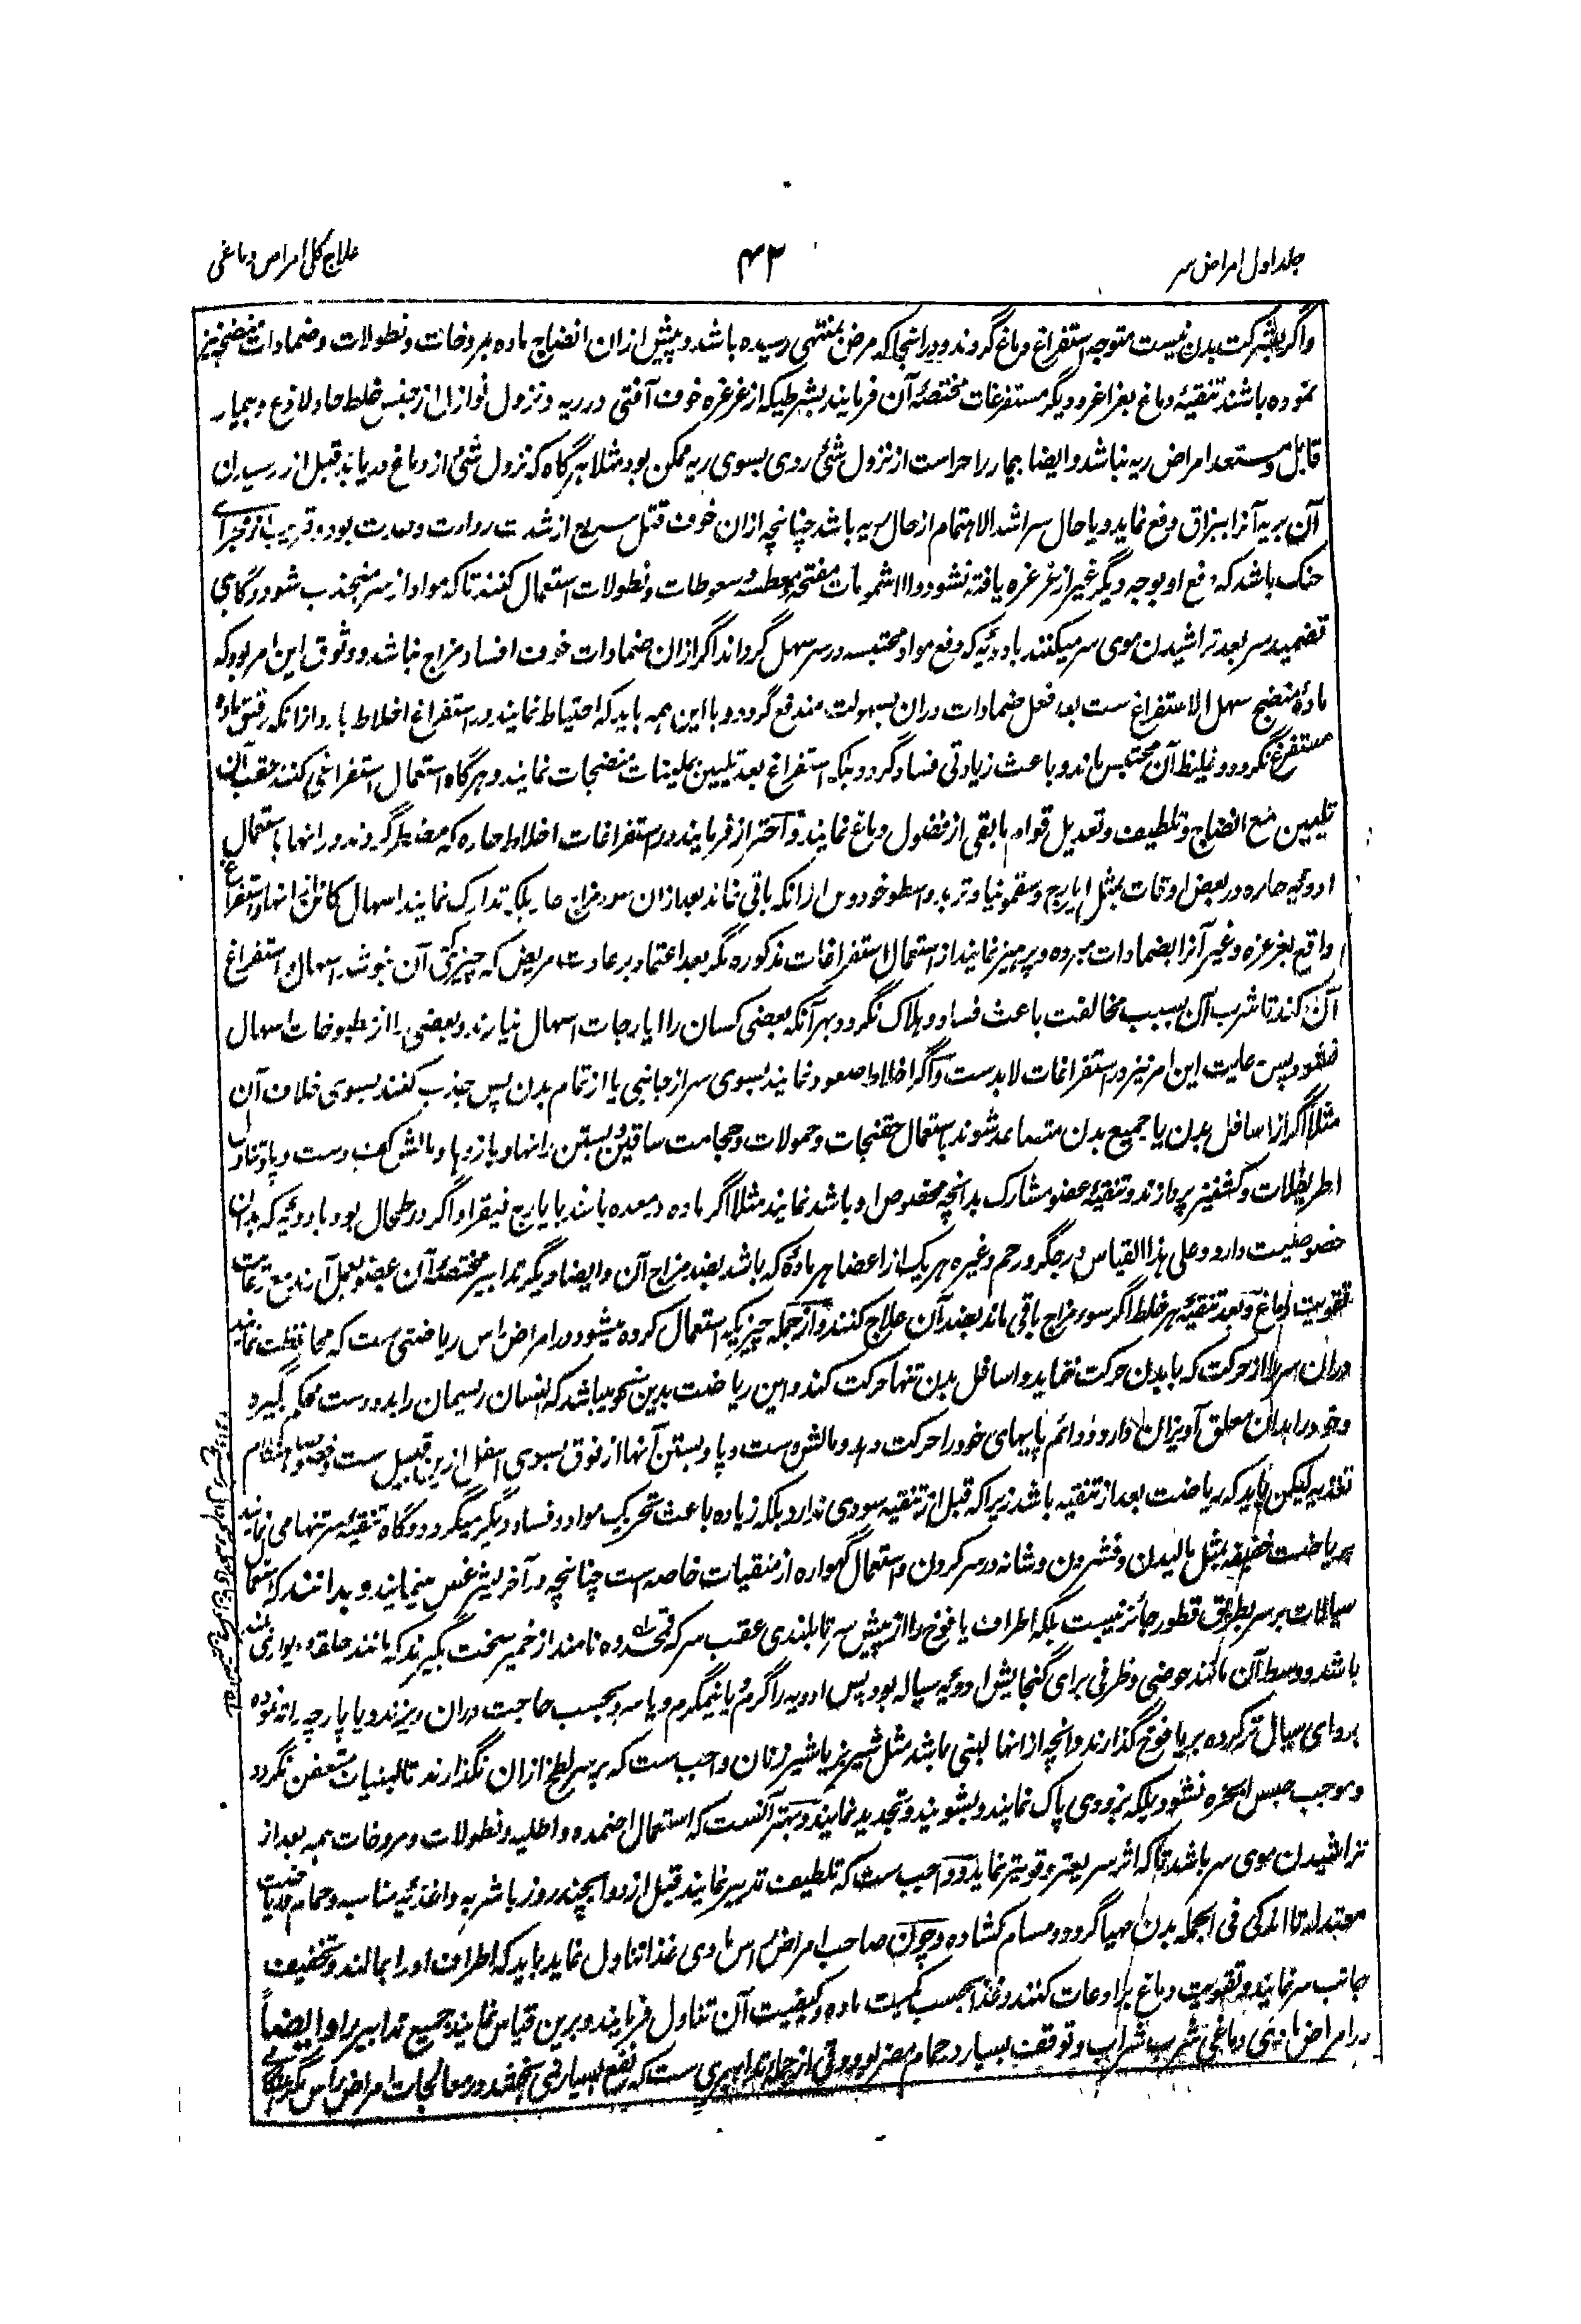 جلد اول امراض سر
۴۲
علاج کلی امراض دماغی
واگر بشرکت بدن نیست متوجه استفراغ دماغ گردند و در انجا که مرض بمنتهی رسیده باشد و پیش ازان انضاج ماده بمروخات و نطولات و ضمادات منضجه نیز
نموده باشند تنقیهٔ دماغ بغراغر و دیگر مستفرغات مختصهٔ آن فرمایند بشرطیکه از غرغره خوف آفتی در ریه و نزول نوازل از جنس خلط حاد لاذع و بیمار
قابل و مستعد امراض ریه نباشد و ایضا بیمار را حراست از نزول شئ ردی بسوی ریه ممکن بود مثلا هرگاه که نزول شئ از دماغ دریابد قبل از رسیدن
آن بریه آنرا ببزاق دفع نماید و یا حال سر اشد الاهتمام از حال ریه باشد چنانچه ازان خوف قتل سریع از شدت رداءت و حدت بود و قریب از مجرای
حنک باشد که دفع او بوجه دیگر غیر از غرغره یافته نشود والا شمومات مفتحه و معطسه و سعوطات و نطولات استعمال کنند تا که مواد از سر منجذب شود و گاهی
تضمید سر بعد تراشیدن موی سر میکنند بادویهٔ که دفع مواد محتبسه در سر سهل گرداند اگر ازان ضمادات خوف افساد مزاج نباشد و وثوق این امر بود که
مادهٔ منضج سهل الاستفراغ ست بعد فعل ضمادات دران بسهولت مندفع گردد و با این همه باید که احتیاط نمایند در استفراغ اخلاط بارد ازانکه رقیق ماده
مستفرغ نگردد و غلیظ آن محتبس ماند و باعث زیادتی فساد گردد بلکه استفراغ بعد تلیین بملینات منضجات نمایند و هرگاه استعمال استفراغی کنند عقب آن
تلیین مع انضاج و تلطیف و تعدیل قوام مابقی از فضول دماغ نمایند و احتراز فرمایند در استفراغات اخلاط حاره که مضطر گردند در انها باستعمال
ادویهٔ حاره در بعض اوقات مثل ایارج و سقمونیا و تربد و اسطوخودوس ازانکه باقی نماند بعد ازان سوء مزاج حار بلکه تدارک نمایند اسهال کائن از انها و استفراغ
واقع بغرغره و غیر آنرا بضمادات مبرده و پرهیز نمایند از استعمال استفراغات مذکوره مگر بعد اعتماد بر عادت مریض که چیزیکه آن بنوشد اسهال و استفراغ
آن کند تا شرب آن بسبب مخالفت باعث فساد و هلاک نگردد بهر آنکه بعضی کسان را ایارجات اسهال نیارند و بعضی را از مطبوخات اسهال
نشود پس رعایت این امر نیز در استفراغات لابدست و اگر اخلاط صعود نمایند بسوی سر از جانبی یا از تمام بدن پس جذب کنند بسوی خلاف آن
مثلاً اگر از اسافل بدن یا جمیع بدن متصاعد شوند باستعمال حقنجات و حمولات و حجامت ساقین و بستن رانها و بازوها و مالش کف دست و پا و تناول
اطریفلات و کشنیز پردازند و تنقیهٔ عضو مشارک بدانچه مخصوص او باشد نمایند مثلا اگر ماده در معده باشد بایارج فیقرا و اگر در طحال بود بادویهٔ که بدان
خصوصیت دارد و علی هذا القیاس در جگر و رحم و غیره هر یک از اعضا هر مادهٔ که باشد بضد مزاج آن و ایضا دیگر تدابیر مختصهٔ آن عضو بعمل آرند مع رعایت
تقویت دماغ و بعد تنقیهٔ هر خلط اگر سوء مزاج باقی ماند بضد آن علاج کنند و از جمله چیزیکه استعمال کرده میشود در امراض راس ریاضتی ست که محافظت نمایند
دران سر را از حرکت که با بدن حرکت ننماید و اسافل بدن تنها حرکت کند و این ریاضت بدین نحو میباشد که انسان ریسمان را بدو دست محکم بگیرد
و خود را بدان معلق آویزان دارد و دائم پایهای خود را حرکت دهد و مالش دست و پا و بستن آنها از فوق بسوی اسفل ازین قبیل ست خصوصا هنگام
تغذیه لیکن باید که ریاضت بعد از تنقیه باشد زیرا که قبل از تنقیه سودی ندارد بلکه زیاده باعث تحریک مواد و فساد دیگر میگردد و گاه تنقیهٔ سر تنها می نمایند
بریاضت خفیفه مثل مالیدن و فشردن و شانه در سر کردن و استعمال گهواره از منقیات خاصه است چنانچه در آخر لیثرغس مینمایند و بدانند که استعمال
سیالات بر سر بطریق قطور جائز نیست بلکه اطراف یافوخ را از پیش سر تا بلندی عقب سر که قمحدوه نامند از خمیر سخت بگیرند که مانند حلقه دیواری بلند
باشد و وسط آن مانند حوضی و ظرفی برای گنجایش ادویهٔ سیاله بود پس ادویه را گرم و یا نیمگرم و یا سرد بحسب حاجت دران ریزند و یا پارچه را ته نموده
بدوای سیال تر کرده بر یافوخ گذارند و انچه از انها لبنی باشد مثل شیر بز یا شیر زنان واجب ست که بر سر لطخ ازان نگذارند تا لبنیات متعفن نگردد
و موجب حبس ابخره نشود بلکه بزودی پاک نمایند و بشویند و تجدید نمایند و بهتر آنست که استعمال اضمده و اطلیه و نطولات و مروخات همه بعد از
تراشیدن موی سر باشد تا که اثر سریعتر و قویتر نماید و واجب ست که تلطیف تدبیر نمایند قبل از دوا بچند روز باشربه و اغذیهٔ مناسبه و حمام و ریاضت
معتدله تا اندکی فی الجمله بدن مهیا گردد و مسام کشاده و چون صاحب امراض راس مادی غذا تناول نماید باید که اطراف او را بمالند و تخفیف
جانب سر نمایند و تقویت دماغ را مراعات کنند و غذا بحسب کمیت ماده و کیفیت آن تناول فرمایند و برین قیاس نمایند جمیع تدابیر را و ایضاً
در امراض مادی دماغی شرب شراب و توقف بسیار در حمام مضر بود و قی از جمله تدابیری ست که نفع بسیار نمی بخشد در معالجات امراض راس مگر